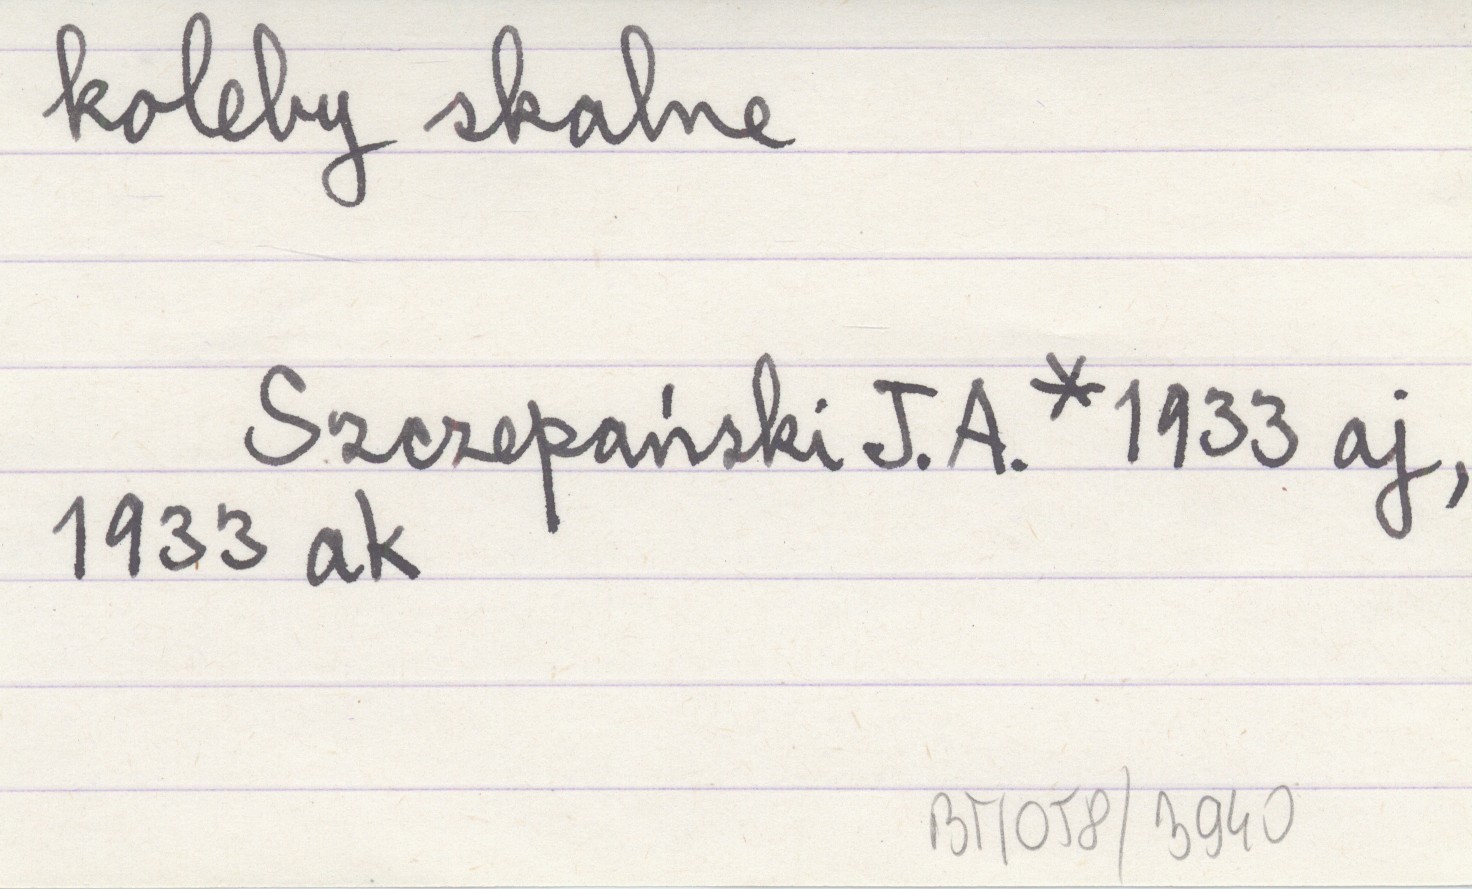 koleby skalne
Szczepański J.A.* 1933 aj,
1933 ak
BT/058/3940